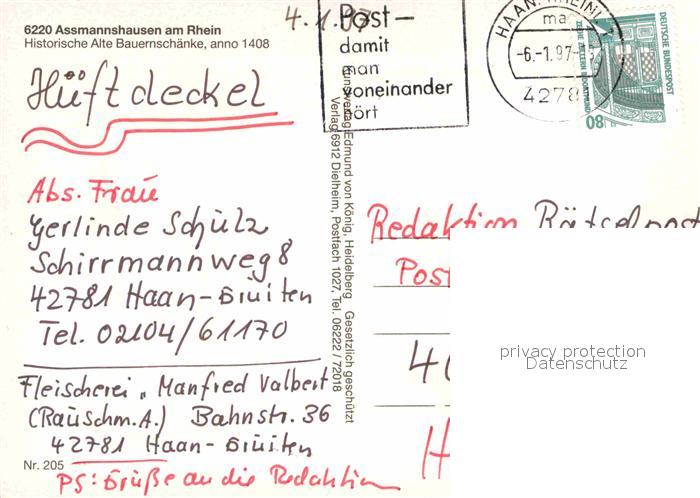 6220 Assmannshausen am Rhein
Historische Alte Bauernschänke, anno 1408
4.1.97
Hüftdeckel
Abs. Frau
Gerlinde Schulz
Schirrmannweg 8
42781 Haan-Gruiten
Tel. 02104/61170
Fleischerei „Manfred Valbert
(Rauschm.A.) Bahnstr. 36
42781 Haan-Gruiten
Nr. 205
PS: Grüße an die Redaktion
Kunstverlag Edmund von König, Heidelberg Gesetzlich geschützt
Verlag 6912 Dielheim, Postfach 1027, Tel. 06222 / 72018
Post —
damit
man
voneinander
hört
HAAN, RHEINL
ma
-6.-1.97-
4278
DEUTSCHE BUNDESPOST
80
Redaktion Rätselpost
Post
40
H
privacy protection
Datenschutz